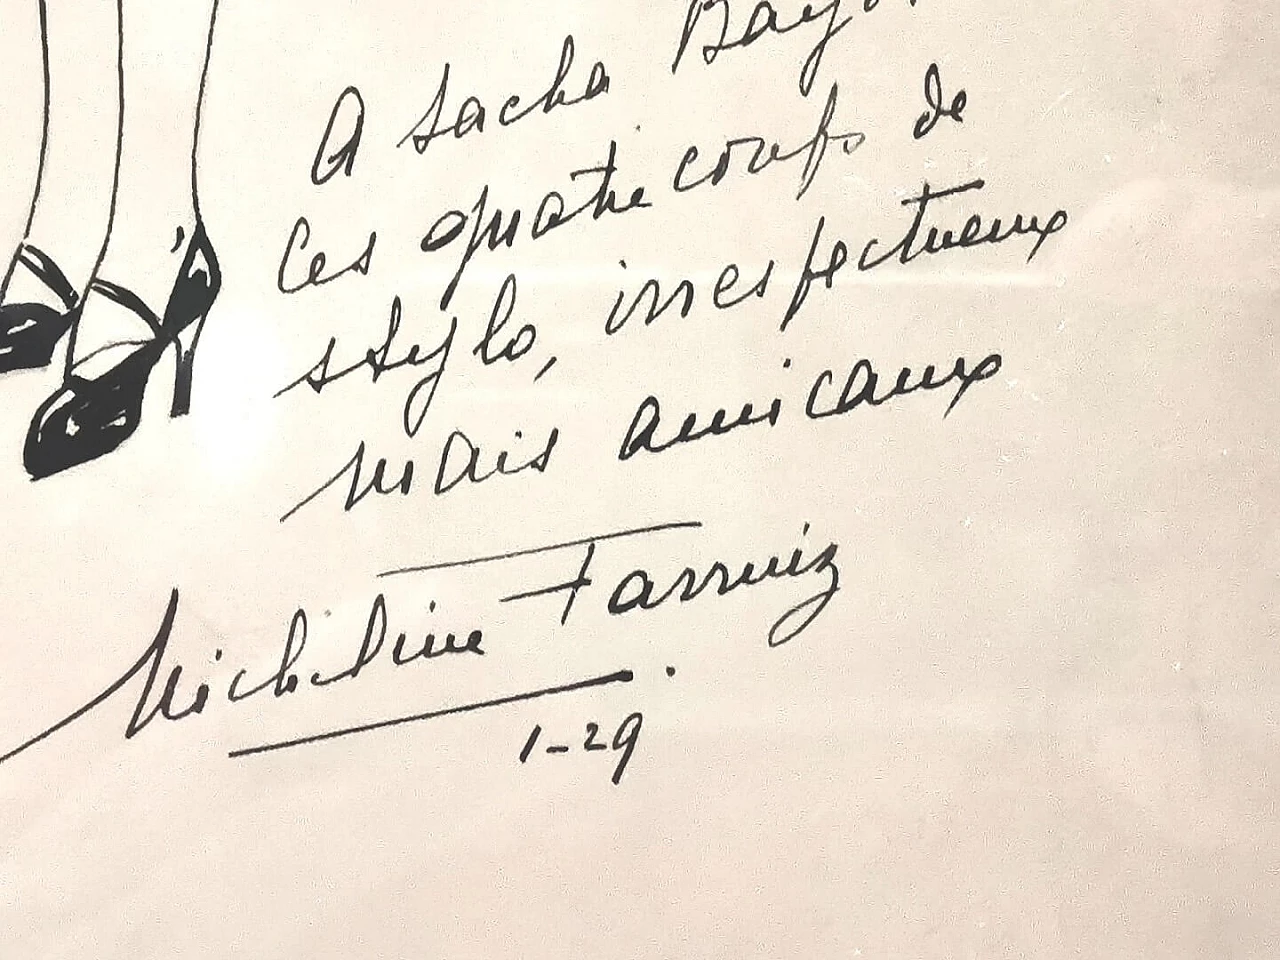 A Sacha
Ces quatre coups de
stylo, irrespectueux
mais amicaux
Micheline Farruiz
1-29